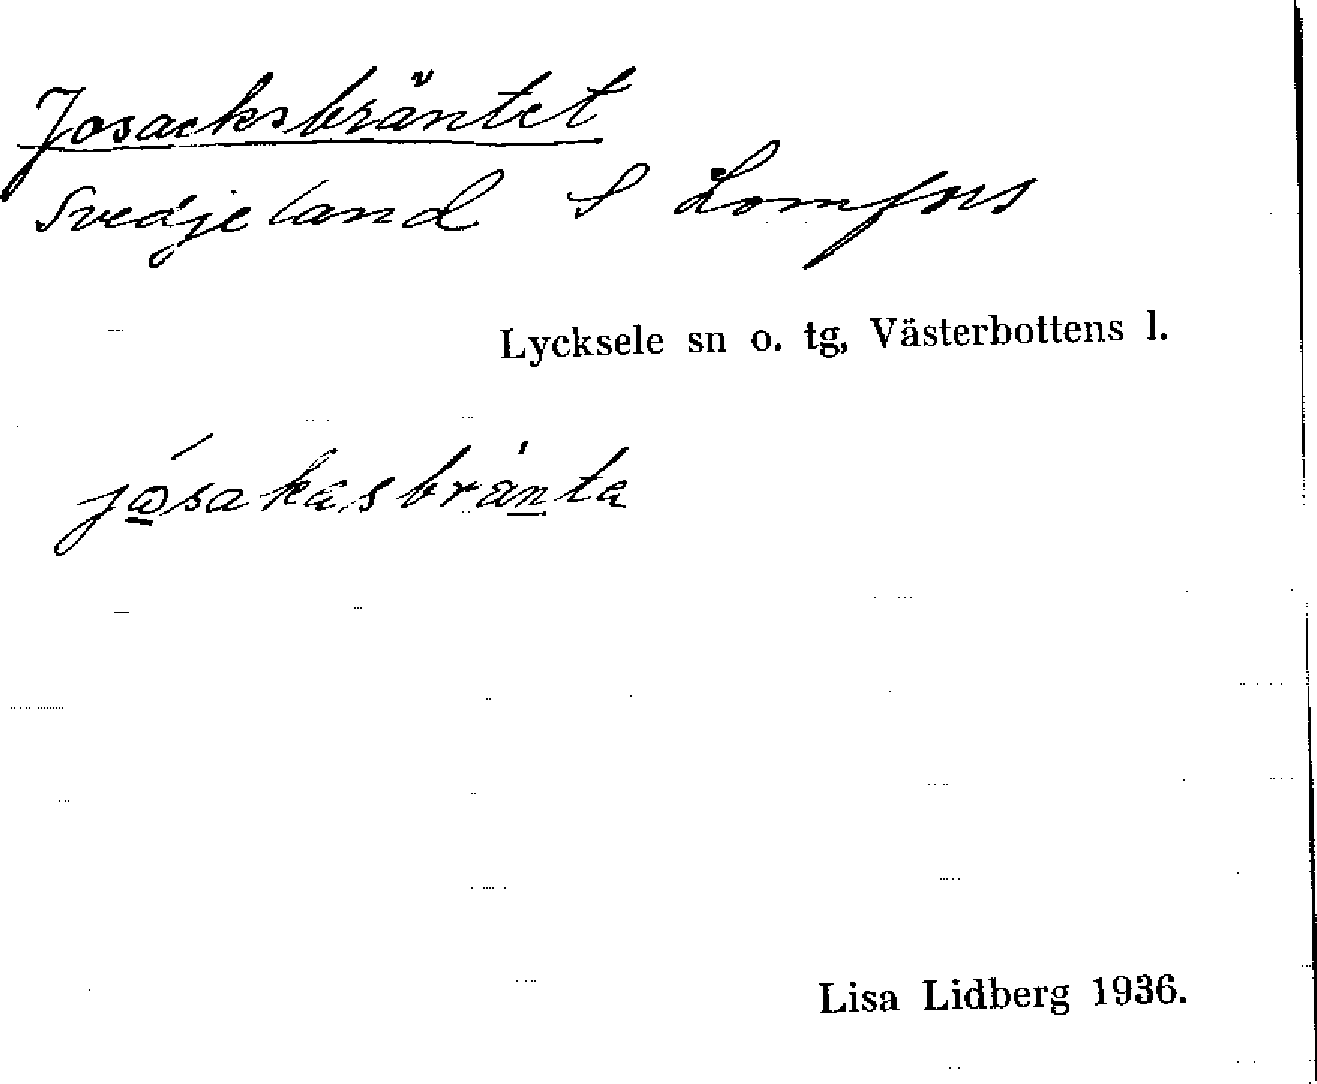 Josacksbräntet
Svedjeland S Lomfors
Lycksele sn o. tg, Västerbottens l.
jåsakasbränta
Lisa Lidberg 1936.